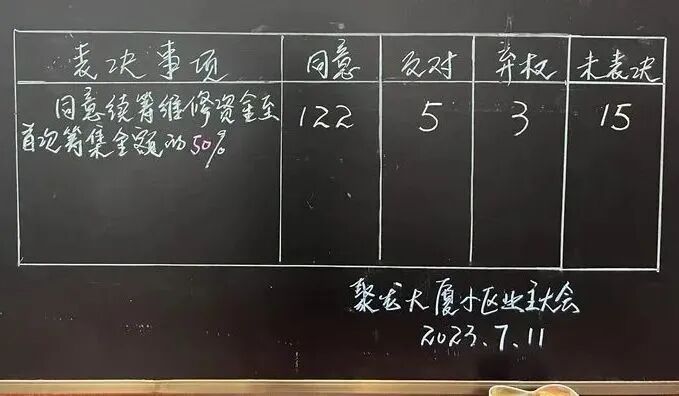 表决事项 同意 反对 弃权 未表决
同意续筹维修资金至 122 5 3 15
首次筹集金额的50%
聚龙大厦小区业主大会
2023.7.11